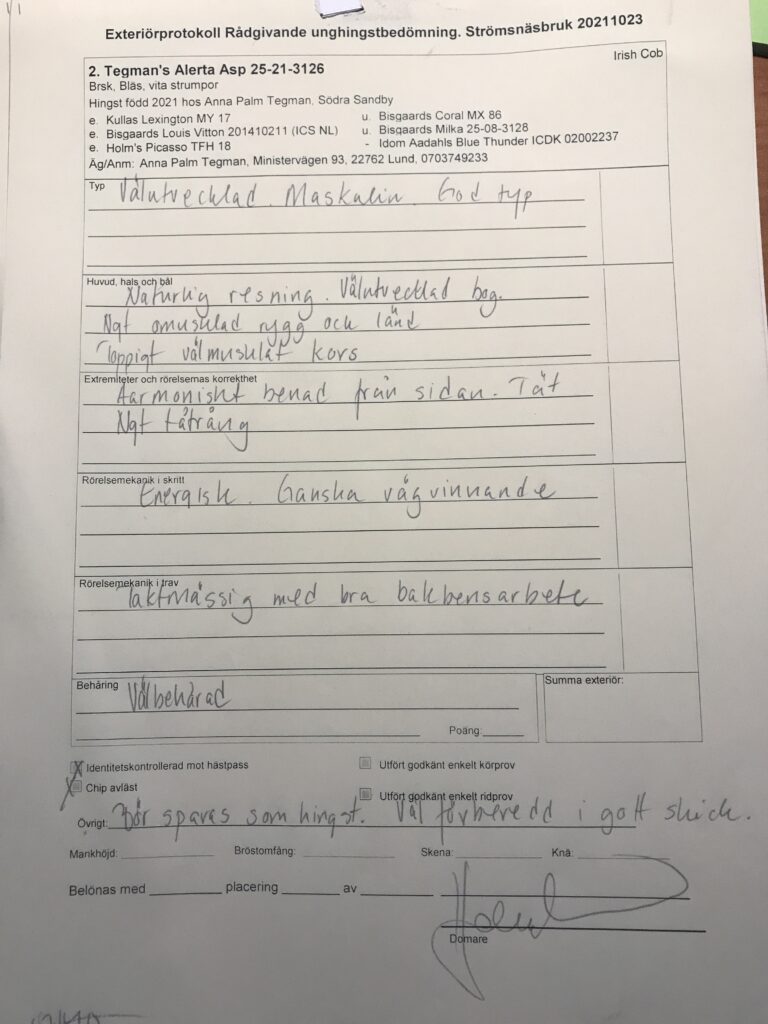 Exteriörprotokoll Rådgivande unghingstbedömning. Strömsnäsbruk 20211023
Irish Cob
2. Tegman's Alerta Asp 25-21-3126
Brsk, Bläs, vita strumpor
Hingst född 2021 hos Anna Palm Tegman, Södra Sandby
e. Kullas Lexington MY 17 u. Bisgaards Coral MX 86
e. Bisgaards Louis Vitton 201410211 (ICS NL) u. Bisgaards Milka 25-08-3128
e. Holm's Picasso TFH 18 - Idom Aadahls Blue Thunder ICDK 02002237
Äg/Anm: Anna Palm Tegman, Ministervägen 93, 22762 Lund, 0703749233
Typ Välutvecklad. Maskulin. God typ
Huvud, hals och bål
Naturlig resning. Välutvecklad bog.
Ngt omusklad rygg och länd
Toppigt välmusklat kors
Extremiteter och rörelsernas korrekthet
Harmoniskt benad från sidan. Tät
Ngt tåtrång
Rörelsemekanik i skritt
Energisk. Ganska vägvinnande
Rörelsemekanik i trav
Taktmässig med bra bakbensarbete
Behåring Välbehårad
Summa exteriör:
Poäng:
X Identitetskontrollerad mot hästpass Utfört godkänt enkelt körprov
X Chip avläst Utfört godkänt enkelt ridprov
Övrigt: Bör sparas som hingst. Väl förberedd i gott skick.
Mankhöjd: Bröstomfång: Skena: Knä:
Belönas med placering av
Domare